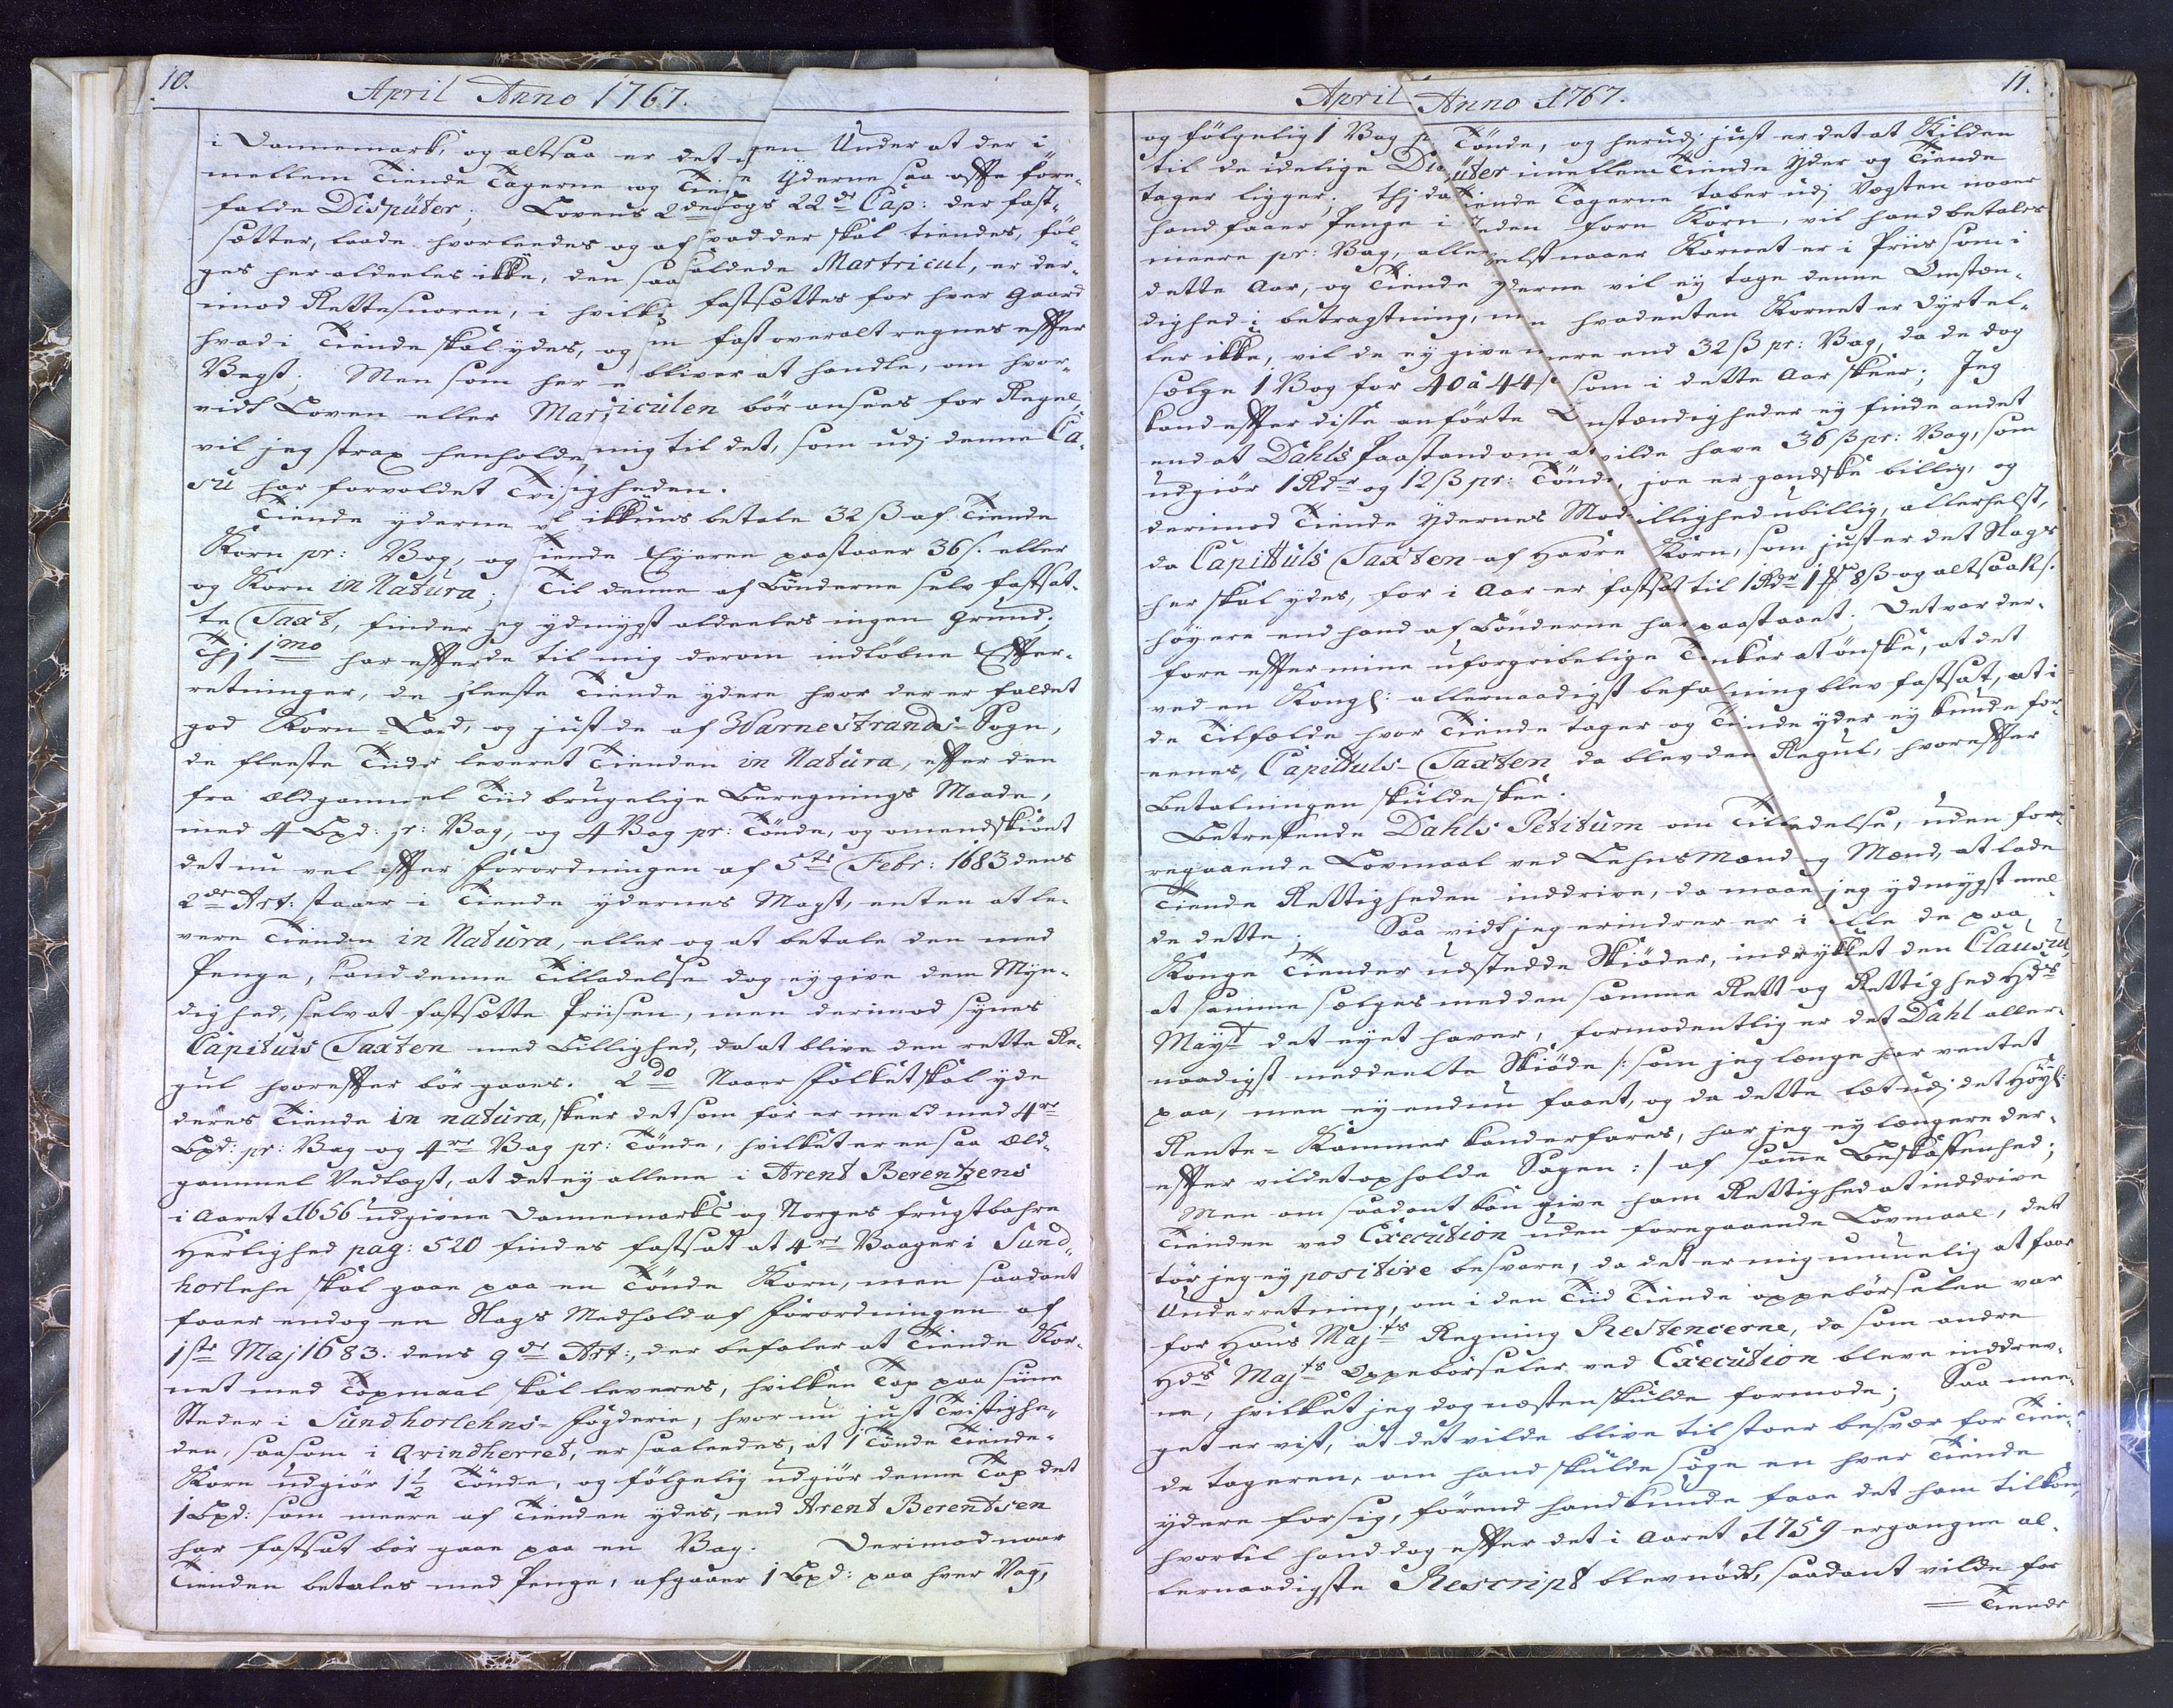 10.
April Anno 1767.
i Dannemark, og altsaa er det ingen Under at der i
mellem Tiende Tagerne og Tiende Yderne saa offte fore-
falde Dispüter; Lovens 2den bogs 22de Cap: der fast-
sætter, baade hvorleedes og af hvad der skal tiendes, föl-
ges her aldeeles ikke, den saa kaldede Martricul, er der-
imod Rettesnoren, i hvilken fastsættes for hver Gaard
hvad i Tiende skal ydes, og som fast overalt regnes effter
Vegt; Men som her ey bliver at handle, om hvor-
vidt Loven eller Martriculen bör ansees for Regel,
vil jeg strax henholde mig til det, som udj denne Ca-
su har forvoldet Tvistigheden.
Tiende yderne vil ikkuns betale 32 ß af Tiende
Korn pr: Vog, og Tiende Eyeren paastaaer 36 s. eller
og Korn in Natura; Til denne af Bönderne selv fastsat-
te Taxt, finder jeg ydmygst aldeeles ingen Grund;
Thj 1mo har effter de til mig derom indlöbne Effter-
retninger, de fleeste Tiende ydere hvor der er faldet
god Korn-Lad, og just de af Warnestrands-Sogn,
de fleeste Tiider leveret Tienden in Natura, effter den
fra ældgammel Tiid brugelige Beregnings Maade,
med 4 Bpd: pr: Vog, og 4 Vog pr: Tönde, og omendskiönt
det nu vel effter Forordningen af 5te Febr: 1683 dens
2den Art: staaer i Tiende ydernes Magt, enten at le-
vere Tienden in Natura, eller og at betale den med
Penge, kand denne Tilladelse dog ey give dem Myn-
dighed, selv at fastsætte Priisen, men derimod synes
Capituls Taxten med Billighed, da at blive den rette Re-
gul hvoreffter bör gaaes. 2do Naaer Folket skal yde
deres Tiende in natura, skeer det som för er meld med 4re
Bpd: pr: Vog og 4re Vog pr: Tönde, hvilket er en saa æld-
gammel Vedtægt, at det ey allene i Arent Berentzens
i Aaret 1656 udgivne Dannemarks og Norges frugtbahre
Herlighed pag: 520 findes fastsat at 4re Vaager i Sund-
horlehn skal gaae paa en Tönde Korn, men saadant
faaer endog en Slags Medhold af Forordningen af
1ste Maj 1683. dens 9de Art:, der befaler at Tiende Kor-
net med Topmaal skal leveres, hvilken Top paa sine
Steder i Sundhorlehns-Fögderie, hvor nu just Tvistighe-
den, saasom i Qvindherret, er saaleedes, at 1 Tönde Tiende-
Korn udgiör 1 1/2 Tönde, og fölgelig udgiör denne Top det
1 Bpd: som meere af Tienden ydes, end Arent Berentsen
har fastsat bör gaae paa en Vog. Derimod naar
Tienden betales med Penge, afgaaer 1 Bpd: paa hver Vog,
11.
April Anno 1767.
og fölgelig 1 Vog pr Tönde, og herudj just er det at Kilden
til de idelige Disputer imellem Tiende Yder og Tiende
tager ligger; Thj da Tiende Tagerne taber udj Vegten naar
hand faaer Penge i steden forn Korn, vil hand betales
meere pr: Vog, allerhelst naaer Kornet er i Priis som i
dette Aar, og Tiende yderne vil ey tage denne Omstæn-
dighed i betragtning, men hvadenten Kornet er dyrt el-
ler ikke, vil de ey give meere end 32 ß pr: Vog, da de dog
sælge 1 Vog for 40 a 44 s: som i dette Aar skeer; Jeg
kand effter disse anförte Omstændigheder ey finde andet
end at Dahls Paastand om at vilde have 36 ß pr: Vog, som
udgiör 1 Rdr og 12 ß pr: Tönde, joe er gandske billig, og
derimod Tiende Ydernes Modvillighed ubillig, allerhelst,
da Capittuls Taxten af Havre Korn, som just er det Slags
her skal ydes, for i Aar er fastsat til 1 Rdr 1 8 ß og altsaa
höyere end hand af Bönderne har paastaaet. Det var der-
fore effter mine uforgribelige Tanker at önske, at det
ved en Kongl: allernaadigst befalning blev fastsat, at i
de Tilfælde hvor Tiende tager og Tiende yder ey kunde for-
eenes, Capittuls-Taxten da blev den Regul, hvoreffter
Betalningen skulde skee.
Betreffende Dahls Petitum om Tilladelse, uden for-
regaaende Lovmaal ved Lehnsmand og Mænd, at lade
Tiende Rettigheden inddrive, da maae jeg ydmygst mel-
de dette. Saa vidt jeg erindrer er i alle de paa
Konge Tiender udstedde Skiöder, indrykket den Clausul,
at samme sælges med den samme Rett og Rettighed Hds
Mayt det eyet haver, formodentlig er det Dahl aller-
naadigst meddeelte Skiöde /: som jeg længe har ventet
paa, men ey endnu faaet, og da dette let udj det Höyl:
Rente-Kammer kand erfares, har jeg ey længere der-
effter vildet opholde Sagen :/ af samme Beskaffenhed;
Men om saadant kan give ham Rettighed at inddrive
Tienden ved Execution uden foregaaende Lovmaal, det
tör jeg ey positive besvare, da det er mig umuelig at faae
Underretning, om i den Tiid Tiende oppebörselen var
for Hans Majts Regning Restencerne, da som andre
Hds Majts Oppebörseler ved Execution bleve inddrev-
ne, hvilket jeg dog næsten skulde formode; Saa mee-
get er vist, at det vilde blive til stoer besvær for Tien-
de tageren, om hand skulde söge en hver Tiende
ydere for sig, förend hand kunde faae det ham tilkom,
hvortil hand dog effter det i Aaret 1759 ergangne al-
lernaadigste Rescript blev nödt, saadant vilde for
Tiende